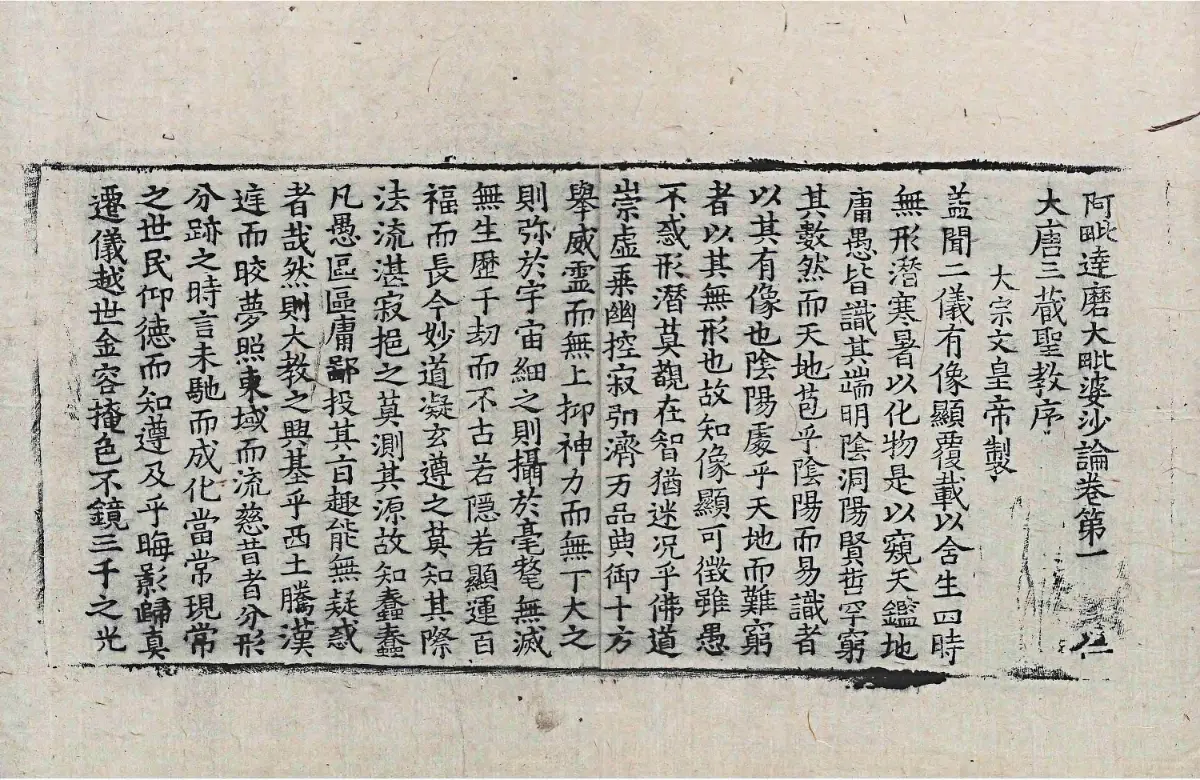 阿毗達磨大毗婆沙論卷第一 仁
大唐三藏聖教序
大宗文皇帝製
盖聞二儀有像顯覆載以含生四時
無形潜寒暑以化物是以窺天鑑地
庸愚皆識其端明陰洞陽賢哲罕窮
其數然而天地苞乎陰陽而易識者
以其有像也陰陽處乎天地而難窮
者以其無形也故知像顯可徵雖愚
不惑形潜莫覩在智猶迷况乎佛道
崇虚乗幽控寂引濟万品典御十方
舉威靈而無上抑神力而無丁大之
則弥於宇宙細之則攝於毫氂無滅
無生歷千劫而不古若隱若顯運百
福而長今妙道凝玄遵之莫知其際
法流湛寂挹之莫測其源故知蠢蠢
凡愚區區庸鄙投其百趣能無疑惑
者哉然則大教之興基乎西土騰漢
遑而晈夢照東域而流慈昔者分形
分跡之時言未馳而成化當常現常
之世民仰德而知遵及乎晦影歸真
遷儀越世金容掩色不鏡三千之光